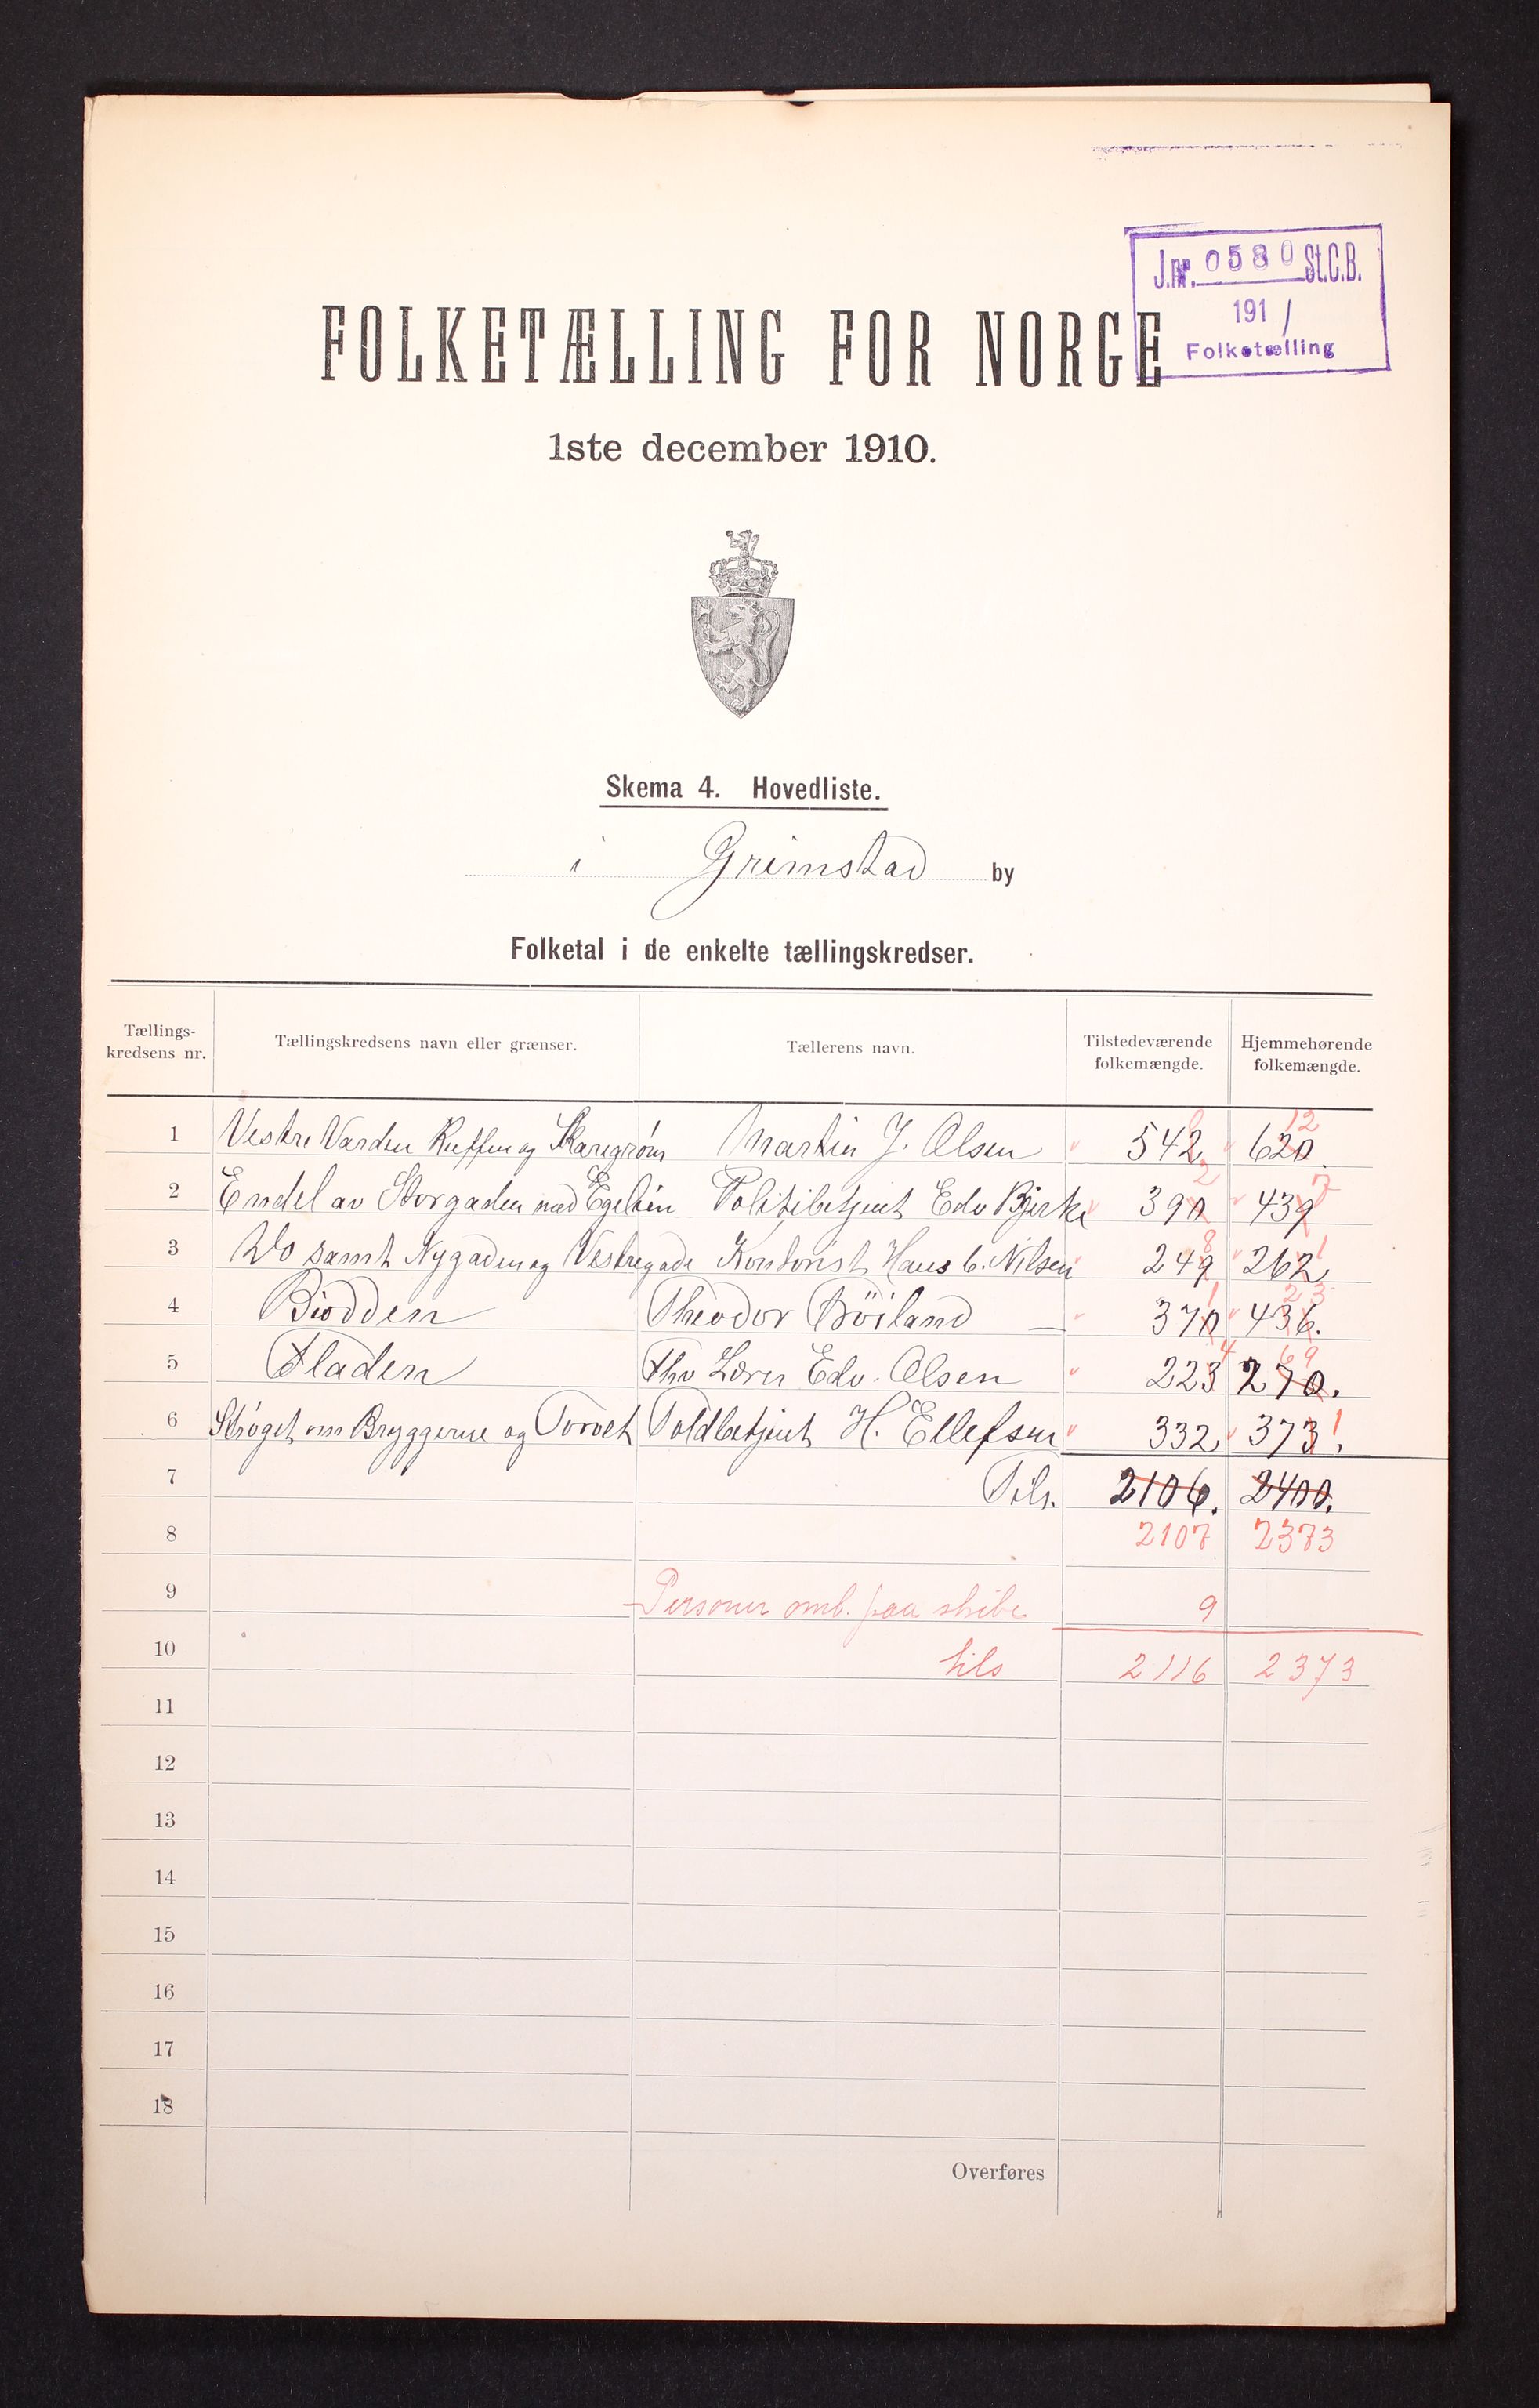 J.nr. 0580 St.C.B.
191 /
Folketælling
FOLKETÆLLING FOR NORGE
1ste december 1910.
Skema 4. Hovedliste.
i Grimstad by
Folketal i de enkelte tællingskredser.
Tællings-
kredsens nr.
Tællingskredsens navn eller grænser.
Tællerens navn.
Tilstedeværende
folkemængde.
Hjemmehørende
folkemængde.
12
1 Vestre Varden og Martin J. Olsen 542 620.
2 7
2 Endel av Storgaden med Politibetjent Edv Bjerke 390 439
8 1
3 Do samt Nygaden og Vestregade Kontorist Hans C. Nilsen 249 262
1 23
4 Biodden Theodor Böiland 370 436.
4 69
5 Fladen Thv Lærer Edv. Olsen 223 270.
6 Strøget om Bryggerne og Torvet Toldbetjent H. Ellefsen 332 373 1.
7 Tils. 2106. 2400.
8 2107 2373
9 Personer omb. paa skibe 9
10 tils 2116 2373
11
12
13
14
15
16
17
18
Overføres